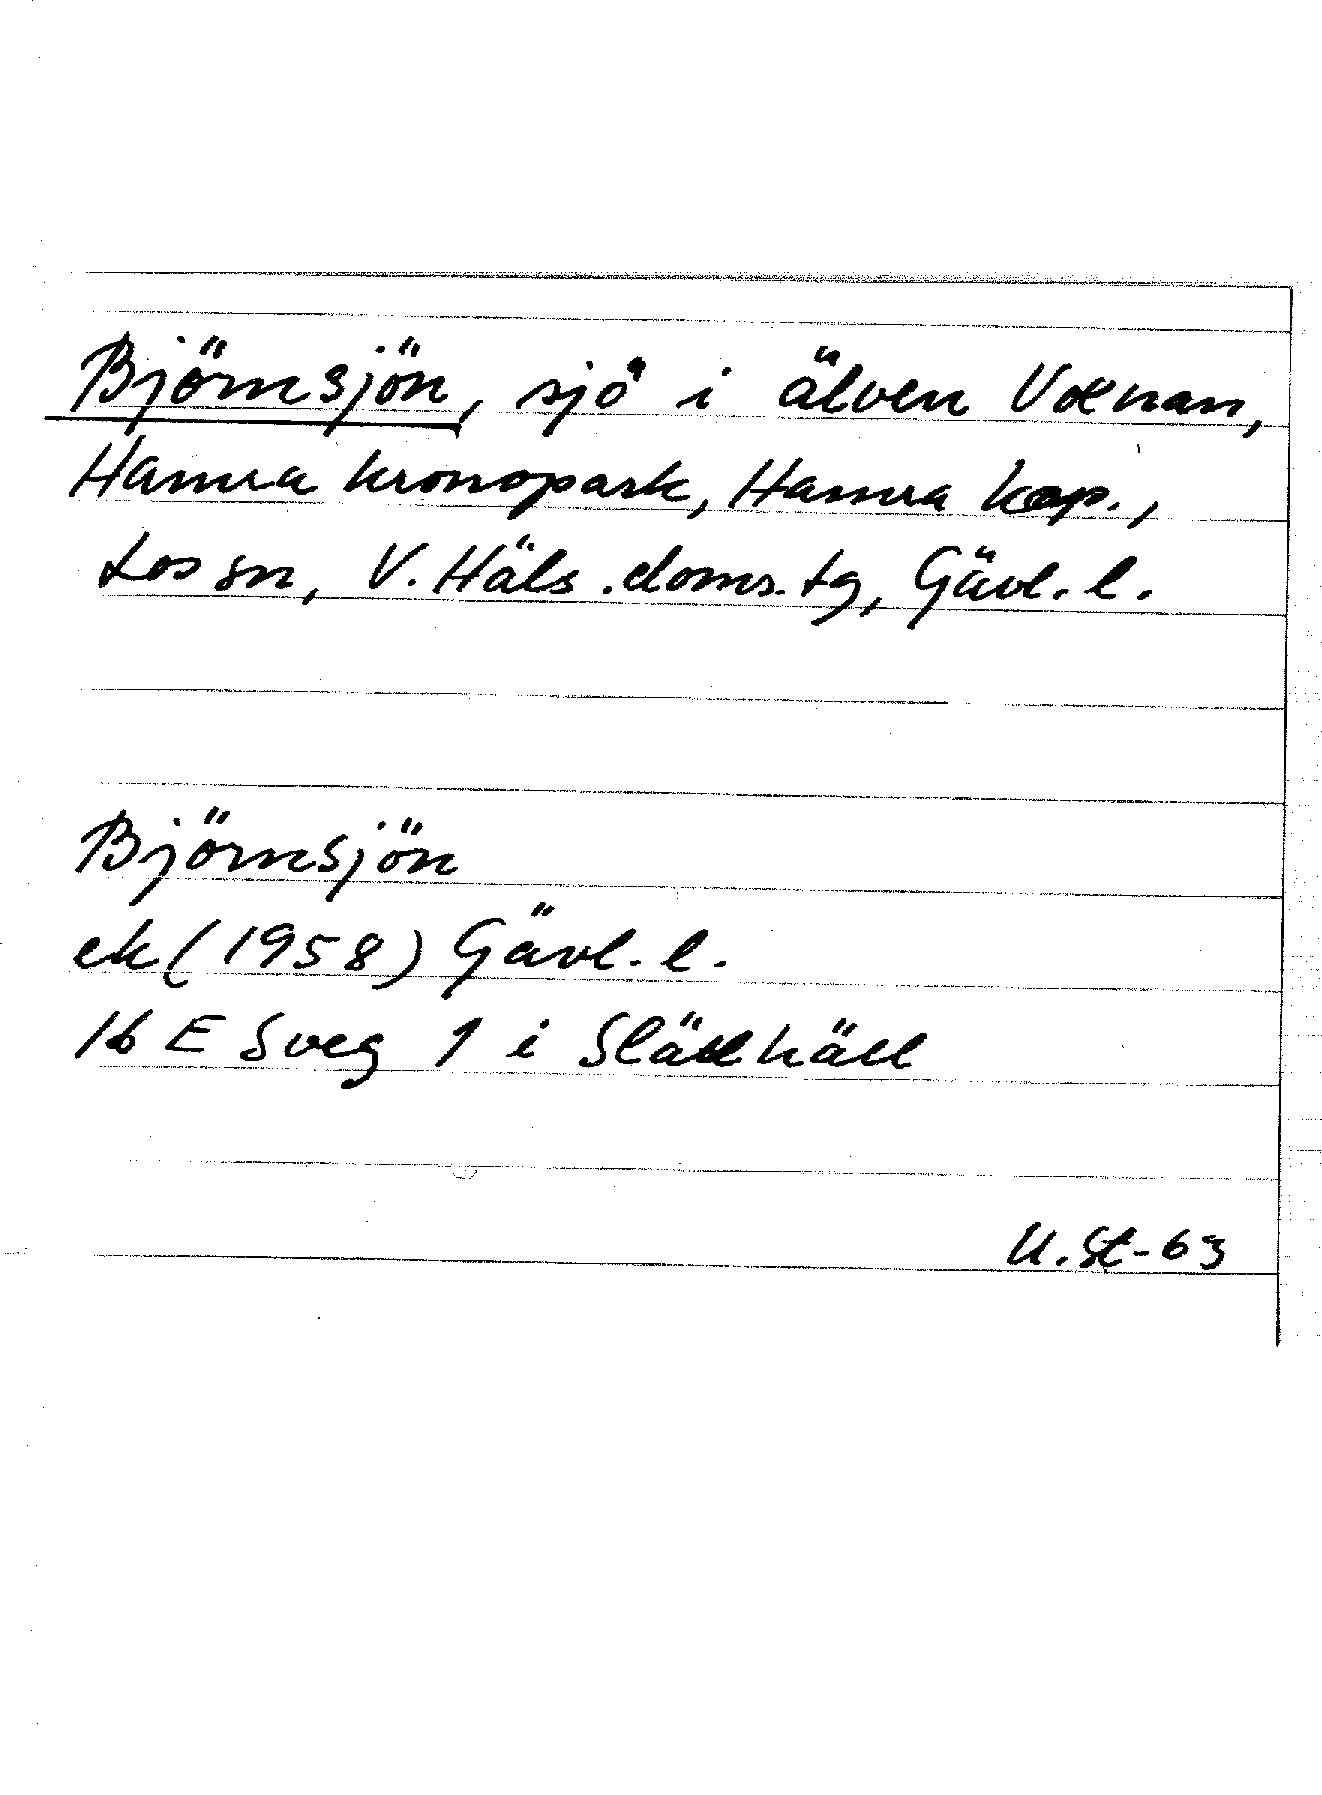 Björnsjön, sjö i älven Voxnan,
Hamra kronopark, Hamra kap.,
Los sn, V. Häls. doms. tg, Gävl. l.
Björnsjön
ek (1958) Gävl. l.
16 E Sveg 1 i
U. St-63